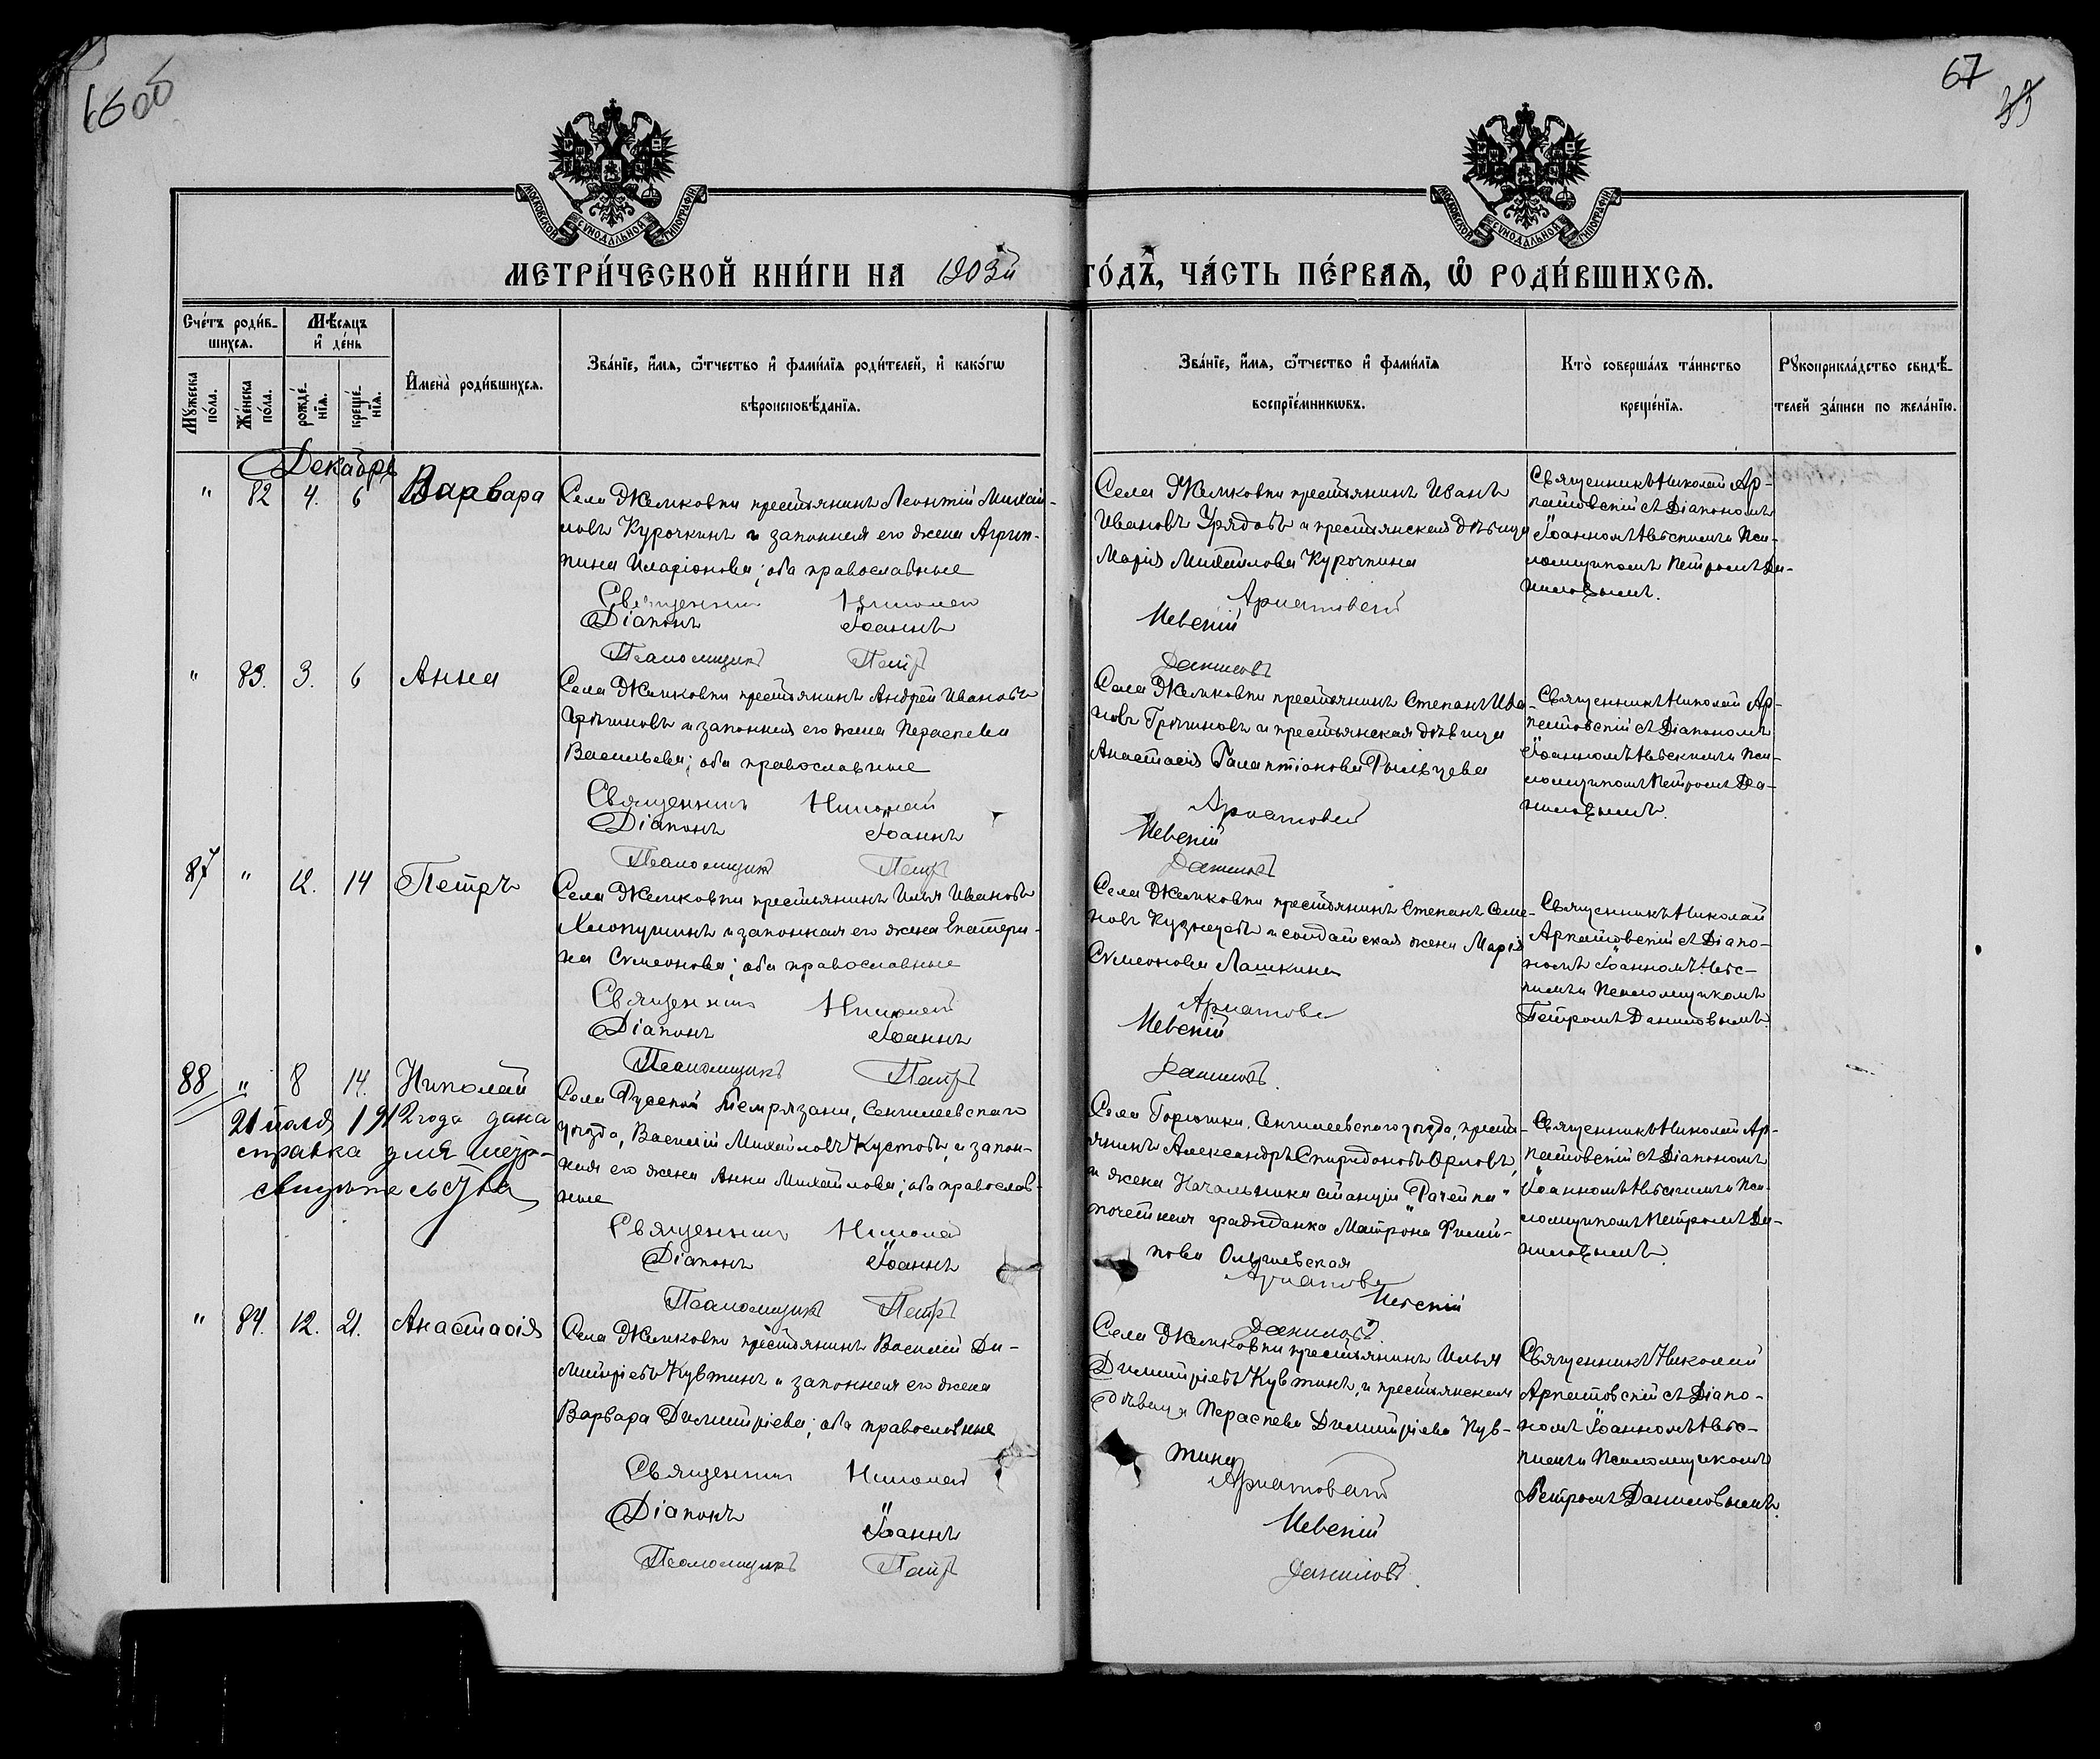 67
МОСКОВСКОЙ СѴНОДАЛЬНОЙ ТИПОГРАФІИ
МОСКОВСКОЙ СѴНОДАЛЬНОЙ ТИПОГРАФІИ
МЕТРИ́ЧЕСКОЙ КНИ́ГИ НА 1903й ГО́ДЪ, ЧА́СТЬ ПЕ́РВАѦ, Ѽ РОДИ́ВШИХСѦ.
Сче́тъ роди́в-
шихсѧ.
Мѣ́сѧцъ
и҆ де́нь
Мꙋ́жеска
по́ла.
Же́нска
по́ла.
рожде́-
нїѧ.
креще́-
нїѧ.
И҆мена̀ роди́вшихсѧ.
Зва́нїе, и҆́мѧ, ѻ҆́тчество и҆ фами́лїѧ роди́телей, и҆ како́гѡ
вѣроисповѣ́данїѧ.
Зва́нїе, и҆́мѧ, ѻ҆́тчество и҆ фами́лїѧ
воспрїе́мникѡвъ.
Кто̀ соверша́лъ та́инство
креще́нїѧ.
Рꙋкоприкла́дство свидѣ́-
телей за́писи по жела́нїю.
Декабрь
" 82 4. 6 Варвара
Села Жемковки крестьянинъ Леонтій Михай-
ловъ Курочкинъ и законная его жена Агрип-
пина Иларіонова; оба православные
Села Жемковки крестьянинъ Иванъ
Ивановъ Урядовъ и крестьянская дѣвица
Марія Михайлова Курочкина
Священникъ Николай Ар-
натовскій съ Діакономъ
Іоанномъ Невскимъ и Пса-
ломщикомъ Петромъ Да-
ниловымъ.
Священникъ Николай Арнатовскій
Діаконъ Іоаннъ Невскій
Псаломщикъ Петръ Даниловъ
" 83. 3. 6 Анна
Села Жемковки крестьянинъ Андрей Ивановъ
Грѣчиновъ и законная его жена Параскева
Васильева; оба православные
Села Жемковки крестьянинъ Степанъ Ива-
новъ Грѣчиновъ и крестьянская дѣвица
Анастасія Галактіонова
Священникъ Николай Ар-
натовскій съ Діакономъ
Іоанномъ Невскимъ и Пса-
ломщикомъ Петромъ Да-
ниловымъ.
Священникъ Николай Арнатовскій
Діаконъ Іоаннъ Невскій
Псаломщикъ Петръ Даниловъ
87 " 12. 14 Петръ
Села Жемковки крестьянинъ Илья Ивановъ
Хлопушинъ и законная его жена Екатери-
на Сѵмеонова; оба православные
Села Жемковки крестьянинъ Степанъ Семе-
новъ Кузнецовъ и солдатская жена Марія
Сѵмеонова Лашкина
Священникъ Николай
Арнатовскій съ Діако-
номъ Іоанномъ Невс-
кимъ и Псаломщикомъ
Петромъ Даниловымъ.
Священникъ Николай Арнатовскій
Діаконъ Іоаннъ Невскій
Псаломщикъ Петръ Даниловъ.
88 " 8 14. Николай
21 1912 года дана
справка для метр-
свидѣтельства
Села Русской Темрязани, Сенгилеевскаго
уѣзда, Василій Михайловъ Кустовъ, и закон-
ная его жена Анна Михайлова; оба православ-
ные
Села Горюшки, Сенгилеевскаго уѣзда, кресть-
янинъ Александръ Спиридоновъ Орловъ,
и жена Начальника станціи „Рачейка"
почетная гражданка Матрона Филип-
пова Ольшевская
Священникъ Николай Ар-
натовскій съ Діакономъ
Іоанномъ Невскимъ и Пса-
ломщикомъ Петромъ Да-
ниловымъ.
Священникъ Николай Арнатовскій
Діаконъ Іоаннъ Невскій
Псаломщикъ Петръ Даниловъ.
" 84. 12. 21. Анастасія
Села Жемковки крестьянинъ Василій Ди-
митріевъ Кувтинъ и законная его жена
Варвара Димитріева; оба православные
Села Жемковки крестьянинъ Илья
Димитріевъ Кувтинъ, и крестьянская
дѣвица Параскева Димитріева Кув-
тина
Священникъ Николай
Арнатовскій съ Діако-
номъ Іоанномъ Невс-
кимъ и Псаломщикомъ
Петромъ Даниловымъ.
Священникъ Николай Арнатовскій
Діаконъ Іоаннъ Невскій
Псаломщикъ Петръ Даниловъ.